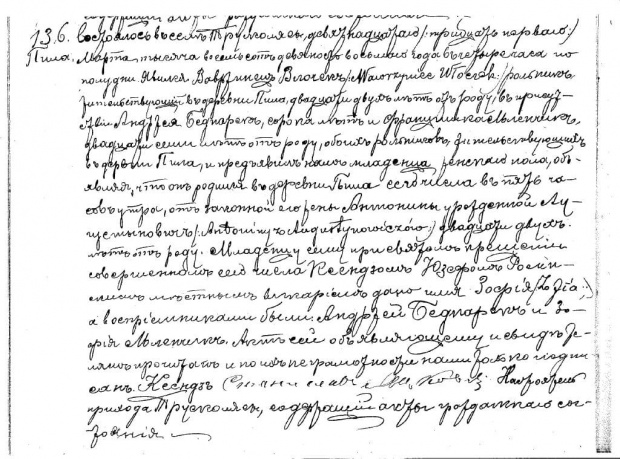 136. Состоялось въ селѣ Трусколясы, девятнадцатаго /: тридцать перваго :/
Пила. Марта тысяча восемьсотъ девяносто восьмаго года въ четыре часа по
полудни. Явился Вавржинецъ Влочекъ /: Wawrzyniec Włoczek :/ рольникъ
жительствующій въ деревни Пила, двадцати двухъ лѣтъ отъ роду, въ присут-
ствіи Андрея Беднарекъ, сорока лѣтъ и Францишка Мленчикъ,
двадцати семи лѣтъ отъ роду, обоихъ рольниковъ, жительствующихъ
въ деревни Пила, и предъявилъ намъ младенца женскаго пола, объ-
являя, что онъ родился въ деревни Пила сего числа въ пять ча-
совъ утра, отъ законной его жены Антонины урожденной Ау-
густыновичъ /: двадцати двухъ
лѣтъ отъ роду. Младенцу сему при святомъ крещеніи
совершенномъ сего числа Ксендзомъ Юзефомъ
мѣстнымъ викаріемъ дано имя Зофія /: Zofia :/
а воспріемниками были: Андрей Беднарекъ и Зо-
фія Мленчикъ. Актъ сей объявляющему и свидѣте-
лямъ прочитанъ и по ихъ неграмотности нами только подпи-
санъ. Ксендзъ Настоятель
прихода Трусколясы, содержащій акты гражданскаго сос-
тоянія